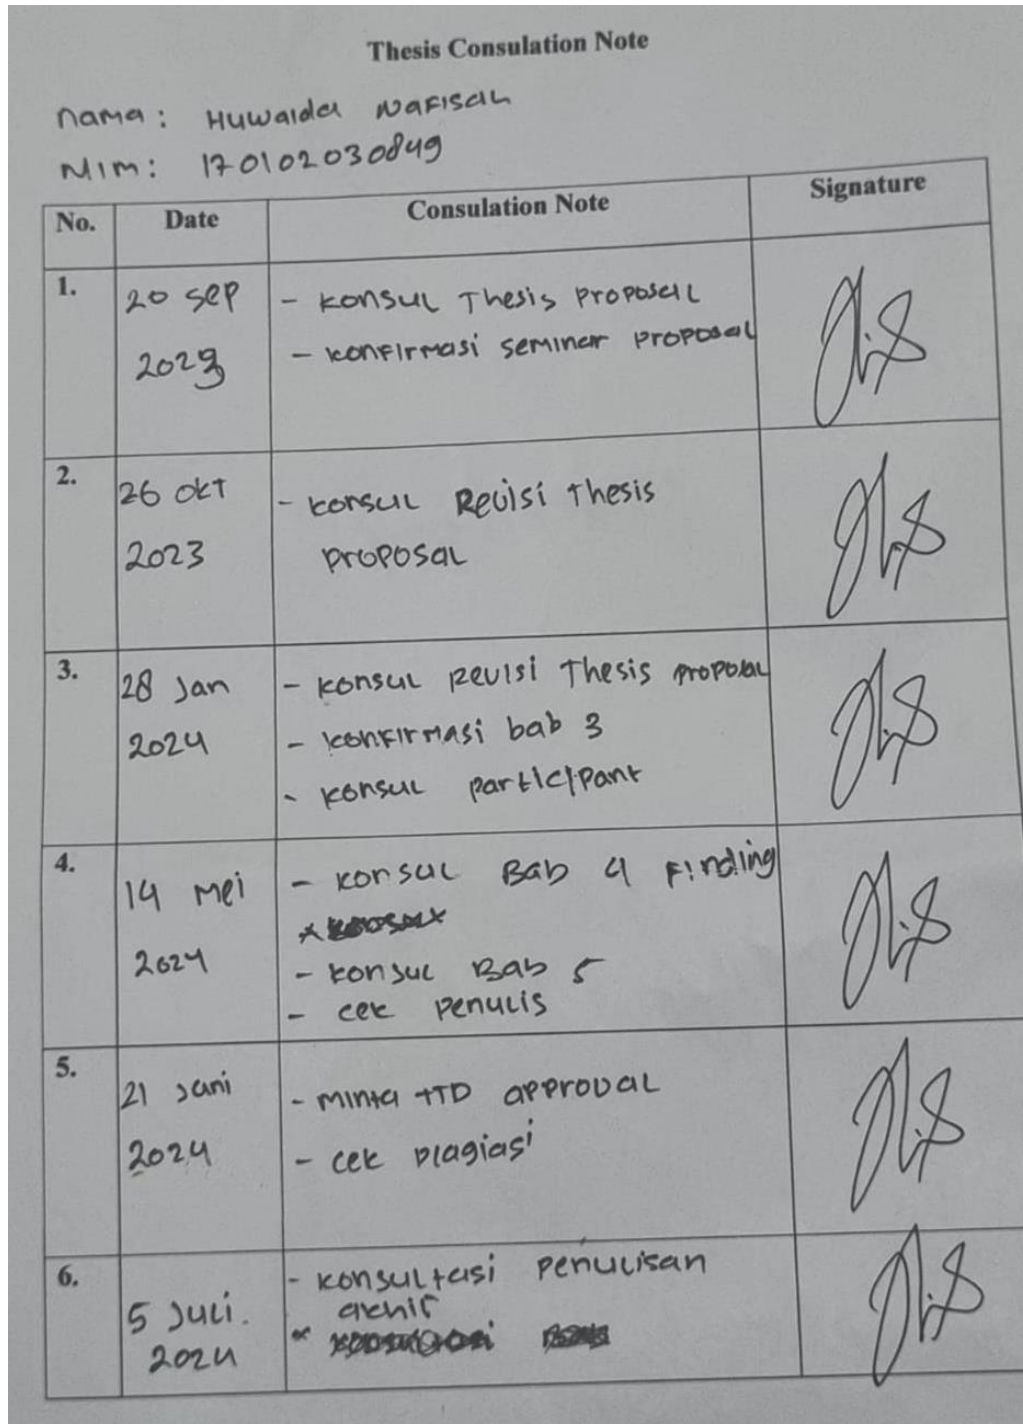 Thesis Consulation Note
Nama : Huwaida Nafisah
NIM : 170102030849
No. Date Consulation Note Signature
1. 20 Sep 2023
- Konsul Thesis Proposal
- Konfirmasi seminar proposal
2. 26 Okt 2023
- Konsul Revisi Thesis
proposal
3. 28 Jan 2024
- Konsul revisi Thesis proposal
- Konfirmasi bab 3
- Konsul participant
4. 14 Mei 2024
- Konsul Bab 4 Finding
- Konsul Bab 5
- cek penulis
5. 21 Juni 2024
- Minta TTD approval
- cek plagiasi
6. 5 Juli. 2024
- Konsultasi penulisan
akhir